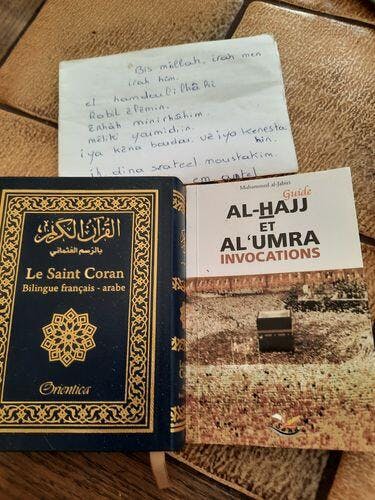 Bis millah, irah men
irah him.
el hamdoulilhâhi
Rabil êlêmin.
Enhâh minirhâhim.
mêliki youmidin.
iya kêna boudou, vê iya kenesta
hin.
ih dina srateel moustakim
القرآن الكريم
بالرسم العثماني
Le Saint Coran
Bilingue français - arabe
Orientica
Muhammed al-Jabiri
Guide
AL-HAJJ
ET
AL'UMRA
INVOCATIONS